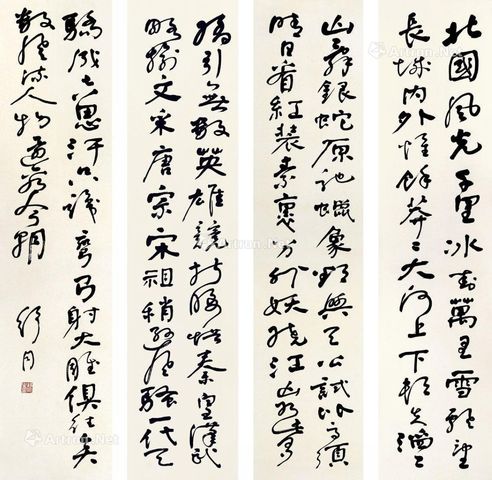 北國風光千里冰封萬里雪飄望
長城內外惟餘莽〻大河上下頓失滔〻
山舞銀蛇原馳蠟象欲與天公試比高須
晴日看紅裝素裹分外妖嬈江山如此多
嬌引無數英雄競折腰惜秦皇漢武
略輸文采唐宗宋祖稍遜風騷一代天
驕成吉思汗只識彎弓射大雕俱往矣
數風流人物還看今朝
舒同
Artron.Net